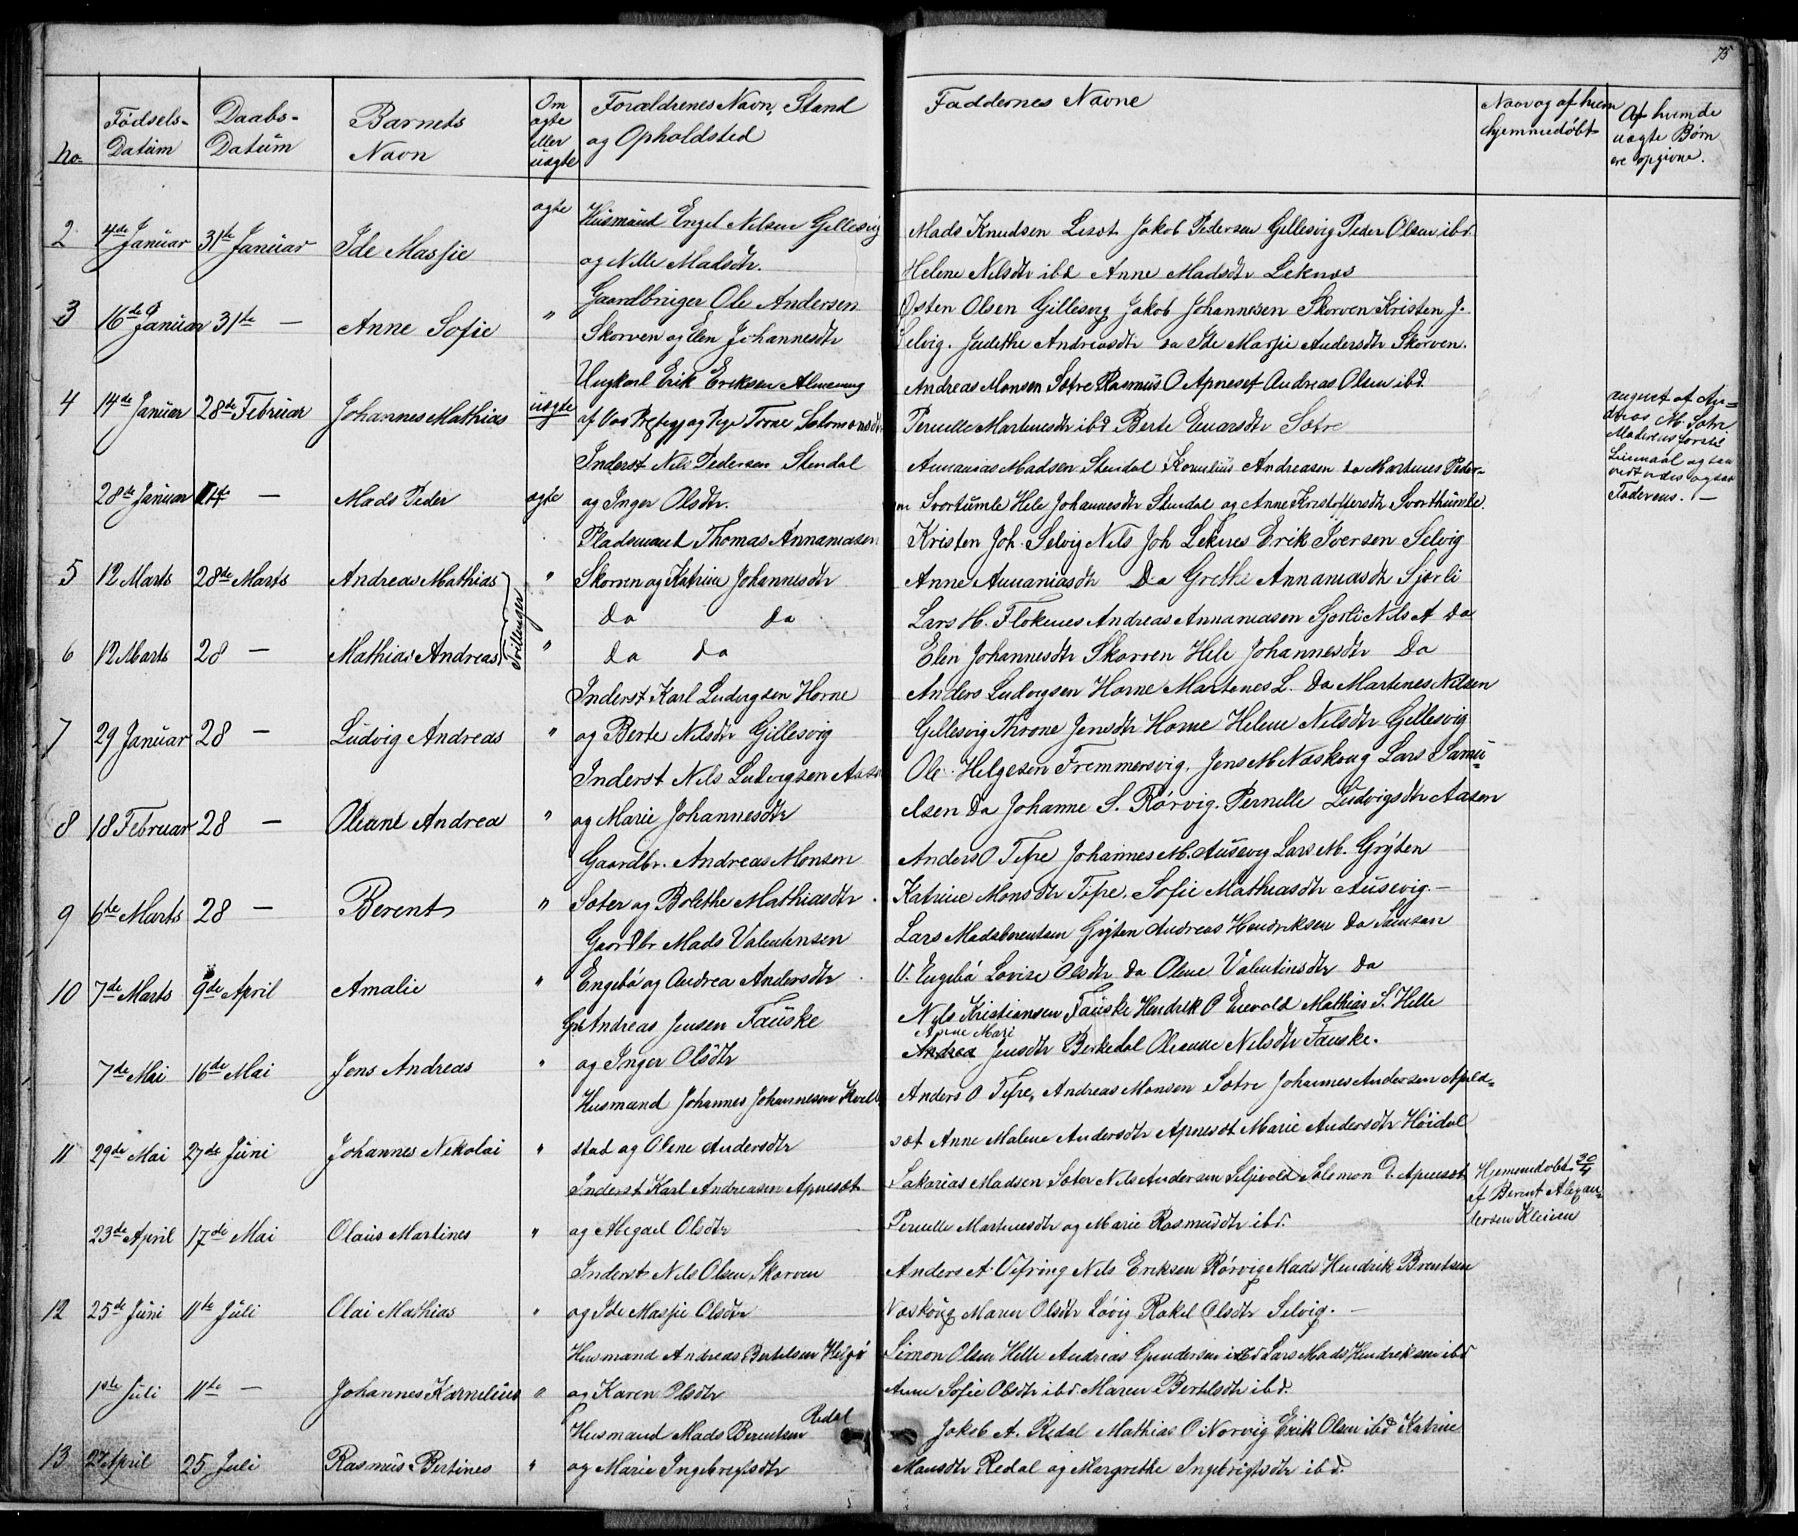 75
No.
Födsels-
Datum
Daabs-
Datum
Barnets
Navn
Om
ægte
eller
uægte
Forældrenes Navn, Stand
og Opholdsted
Faddernes Navne
Naar og af hvem
hjemmedöbt
Af hvem de
uægte Børn
ere opgivne.
2 4de Januar 31te Januar Ide Masjie ægte Husmand Engel Nilsen Gillesvig
og Nille Madsdtr.
Mads Knudsen Leset Jakob Pedersen Gillesvig Peder Olsen ibd
Helene Nilsdtr ibd Anne Madsdtr Leknes
3 16de Januar 31te — Anne Sofie " Gaardbruger Ole Andersen
Skorven og Elen Johannesdtr
Østen Olsen Gillesvig Jakob Johannesen Skorven Kristen J.
Selvig. Judithe Andreasdtr da Ide Masjie Andersdtr Skorven.
4 14de Januar 28de Februar Johannes Mathias uægte Ungkarl Erik Eriksen Almenning
af Vos Prestegj og Pige Torne Salomonsdtr
Andreas Monsen Sætre Rasmus O Apneset Andreas Olsen ibd
Pernelle Martinesdtr ibd Berte Enarsdtr Sætre
28de Januar 14te — Mads Peder ægte Inderst Nils Pedersen Stendal
og Inger Olsdtr.
Ananias Madsen Stendal Kornelius Andreasen da Martines Peder-
en Svortumle Hele Johannesdtr Stendal og Anne Kristoffersdtr Svorthumle.
5 12 Marts 28de Marts Andreas Mathias " Pladsmand Thomas Annaniasen
Skorven og Katrine Johannesdtr
Kristen Joh. Selvig Nils Joh Leknes Erik Iversen Selvig
Anne Ananiasdtr Da Grethe Annaniasdtr Sjorli
Tvillinger
6 12 Marts 28 — Mathias Andreas " da da
da da
Lars H. Flokenes Andreas Annaniasen Sjorli Nils A da
Elen Johannesdtr Skorven Hele Johannesdtr Da
7 29 Januar 28 — Ludvig Andreas " Inderst Karl Ludvigsen Horne
og Berte Nilsdtr Gillesvig
Anders Ludvigsen Horne Martenes L. da Martenes Nilsen
Gillesvig Throne Jensdtr Horne Helene Nilsdtr Gillesvig
8 18 Februar 28 — Oleane Andrea " Inderst Nils Ludvigsen Aasen
og Marie Johannesdtr
Ole Helgesen Fremmersvig. Jens M Næskoug Lars Samu-
elsen da Johanne S. Rörvig. Pernelle Ludvigsdtr Aasen
9 6de Marts 28 — Berent " Gaardbr. Andreas Monsen
Sæter og Bolethe Mathiasdtr
Anders O Tefre Johannes M. Ausevig Lars M. Gryten
Katrine Monsdtr Tefre. Sofie Mathiasdtr Ausevig. —
10 7de Marts 9de April Amalie " Gaardbr Mads Valentinsen
Engebö og Andrea Andersdtr
Lars Madsberentsen Gryten Andreas Hendriksen da
V. Engebö Lovise Olsdtr da Olene Valentinsdtr da
7de Mai 16de Mai Jens Andreas " Gbr Andreas Jensen Fauske
og Inger Olsdtr
Nils Kristiansen Fauske Hendrik O Enevold Mathias S. Helle
Anne Mari
Andrea Jensdtr Berkedal Oleanne Nilsdtr Fauske.
11 29de Mai 27de Juni Johannes Nekolai " Husmand Johannes Johannesen Kvell
stad og Olene Andersdtr
Anders O Tefre, Andreas Monsen Sætre Johannes Andersen Apeld-
sæt Anne Malene Andersdtr Apnesæt Marie Andersdtr Höidal
23de April 17de Mai Olaus Martines " Inderst Karl Andreasen Apnesæt
og Abegael Olsdtr
Sakarias Madsen Sæter Nils Andersen Seljevold Salomon D. Apnesæt
Pernelle Martinesdtr og Marie Rasmusdtr ibd.
Hjemmedöbt 30/4
af Berent Alexan-
dersen Kleiven
12 25de Juni 11te Juli Olai Mathias " Inderst Nils Olsen Skorven
og Ide Masjie Olsdtr
Anders A Vefring Nils Eriksen Rörvig Mads Hendrik Berentsen
Næskoug Maren Olsdtr Lövig Rakel Olsdtr Selvig. —
1ste Juli 11te — Johannes Kornelius " Husmand Andreas Bertelsen
og Karen Olsdtr
Simon Olsen Helle Andreas Gundersen ibd Lars Mads Hendriksen ibd
Anne Sofie Olsdtr ibd. Maren Bertelsdtr ibd.
13 27 April 25 Juli Rasmus Bertines " Husmand Mads Berentsen Redal
og Marie Ingebregtsdtr
Jakob A. Redal Mathias O Norvig Erik Olsen ibd Katrine
Mansdtr Redal og Margrethe Ingebrigtsdtr ibd.